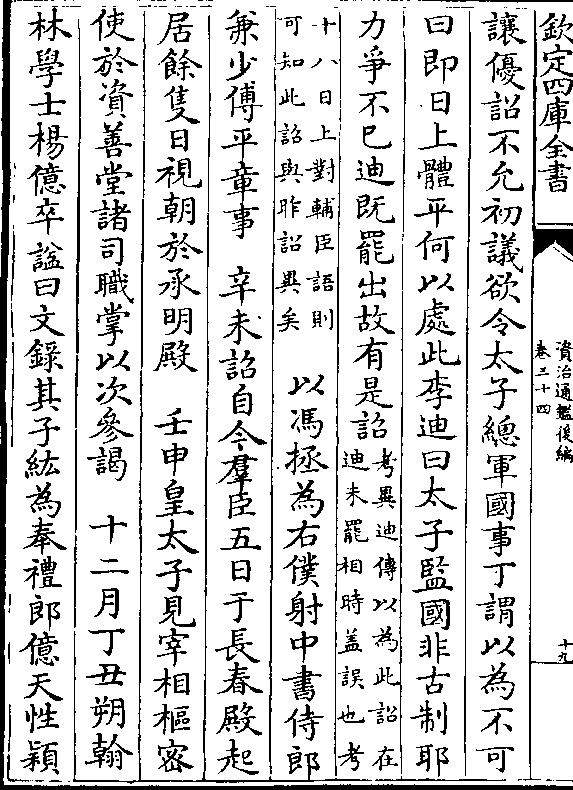 欽定四庫全書
資治通鑑後編
卷三十四
十九
讓優詔不允初議欲令太子總軍國事丁謂以為不可
曰即日上體平何以處此李迪曰太子監國非古制耶
力爭不巳迪既罷出故有是詔
考異迪傳以為此詔在
迪未罷相時盖誤也考
十八日上對輔臣語則
可知此詔與昨詔異矣
以馮拯為右僕射中書侍郎
兼少傅平章事 辛未詔自今羣臣五日于長春殿起
居餘隻日視朝於承明殿 壬申皇太子見宰相樞密
使於資善堂諸司職掌以次參謁 十二月丁丑朔翰
林學士楊億卒諡曰文錄其子紘為奉禮郎億天性穎